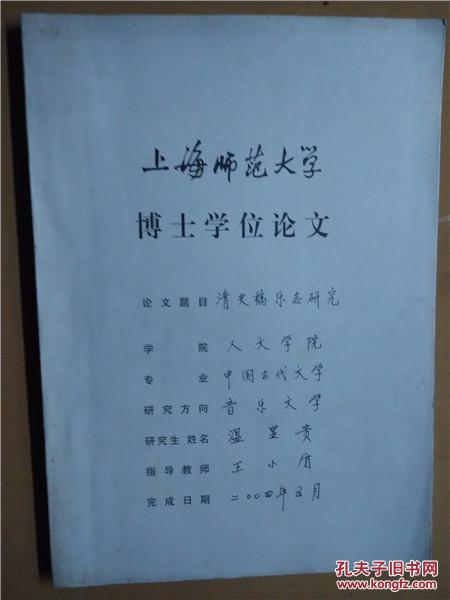 上海师范大学
博士学位论文
论文题目 清史稿乐志研究
学院 人文学院
专业 中国古代文学
研究方向 音乐文学
研究生姓名 温显贵
指导教师 王小盾
完成日期 二〇〇四年五月
孔夫子旧书网
www.kongfz.com